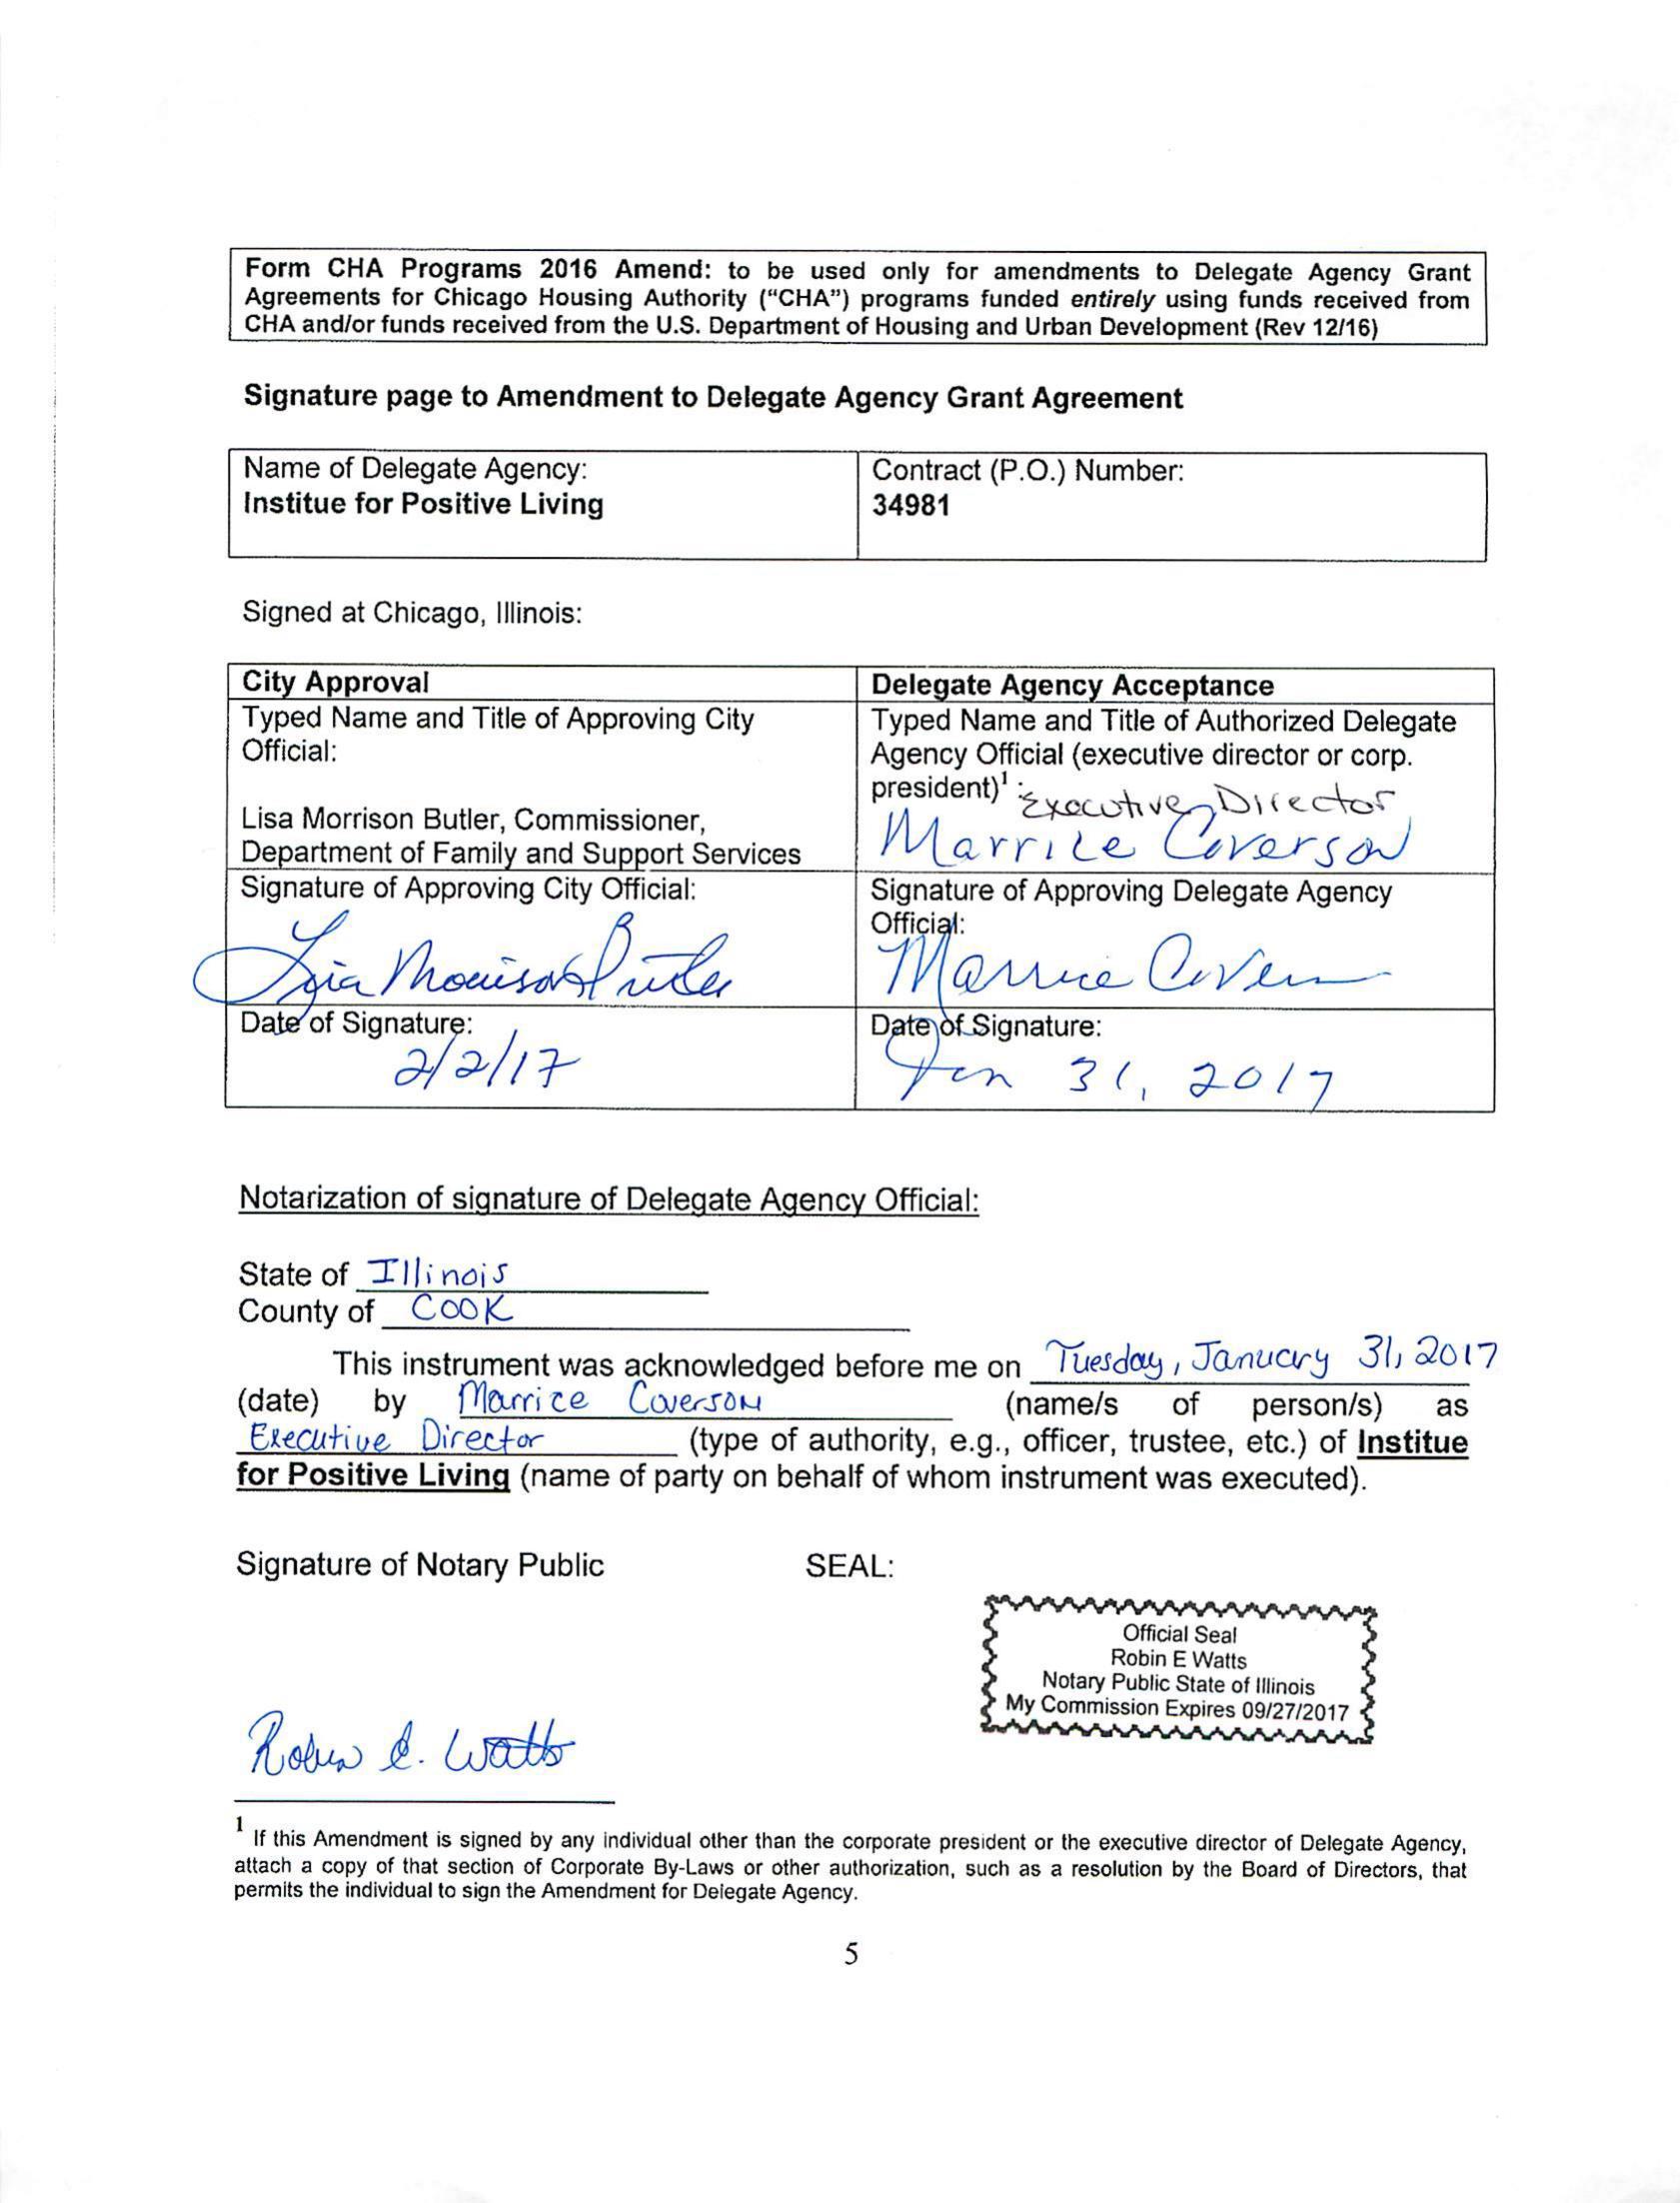 Form CHA Programs 2016 Amend: to be used only for amendments to Delegate Agency Grant
Agreements for Chicago Housing Authority (“CHA”) programs funded entirely using funds received from
CHA and/or funds received from the U.S. Department of Housing and Urban Development (Rev 12/16)
Signature page to Amendment to Delegate Agency Grant Agreement
Name of Delegate Agency:
Institue for Positive Living
Contract (P.O.) Number:
34981
Signed at Chicago, Illinois:
City Approval
Typed Name and Title of Approving City
Official:
Lisa Morrison Butler, Commissioner,
Department of Family and Support Services
Signature of Approving City Official:
Lisa Morrison Butler
Date of Signature:
2/2/17
Delegate Agency Acceptance
Typed Name and Title of Authorized Delegate
Agency Official (executive director or corp.
president)1 : Executive Director
Marrice Coverson
Signature of Approving Delegate Agency
Official:
Marrice Covers
Date of Signature:
Jan 31, 2017
Notarization of signature of Delegate Agency Official:
State of Illinois
County of COOK
This instrument was acknowledged before me on Tuesday, January 31, 2017
(date) by Marrice Coverson (name/s of person/s) as
Executive Director (type of authority, e.g., officer, trustee, etc.) of Institue
for Positive Living (name of party on behalf of whom instrument was executed).
Signature of Notary Public SEAL:
Official Seal
Robin E Watts
Notary Public State of Illinois
My Commission Expires 09/27/2017
Robin E. Watts
1 If this Amendment is signed by any individual other than the corporate president or the executive director of Delegate Agency,
attach a copy of that section of Corporate By-Laws or other authorization, such as a resolution by the Board of Directors, that
permits the individual to sign the Amendment for Delegate Agency.
5